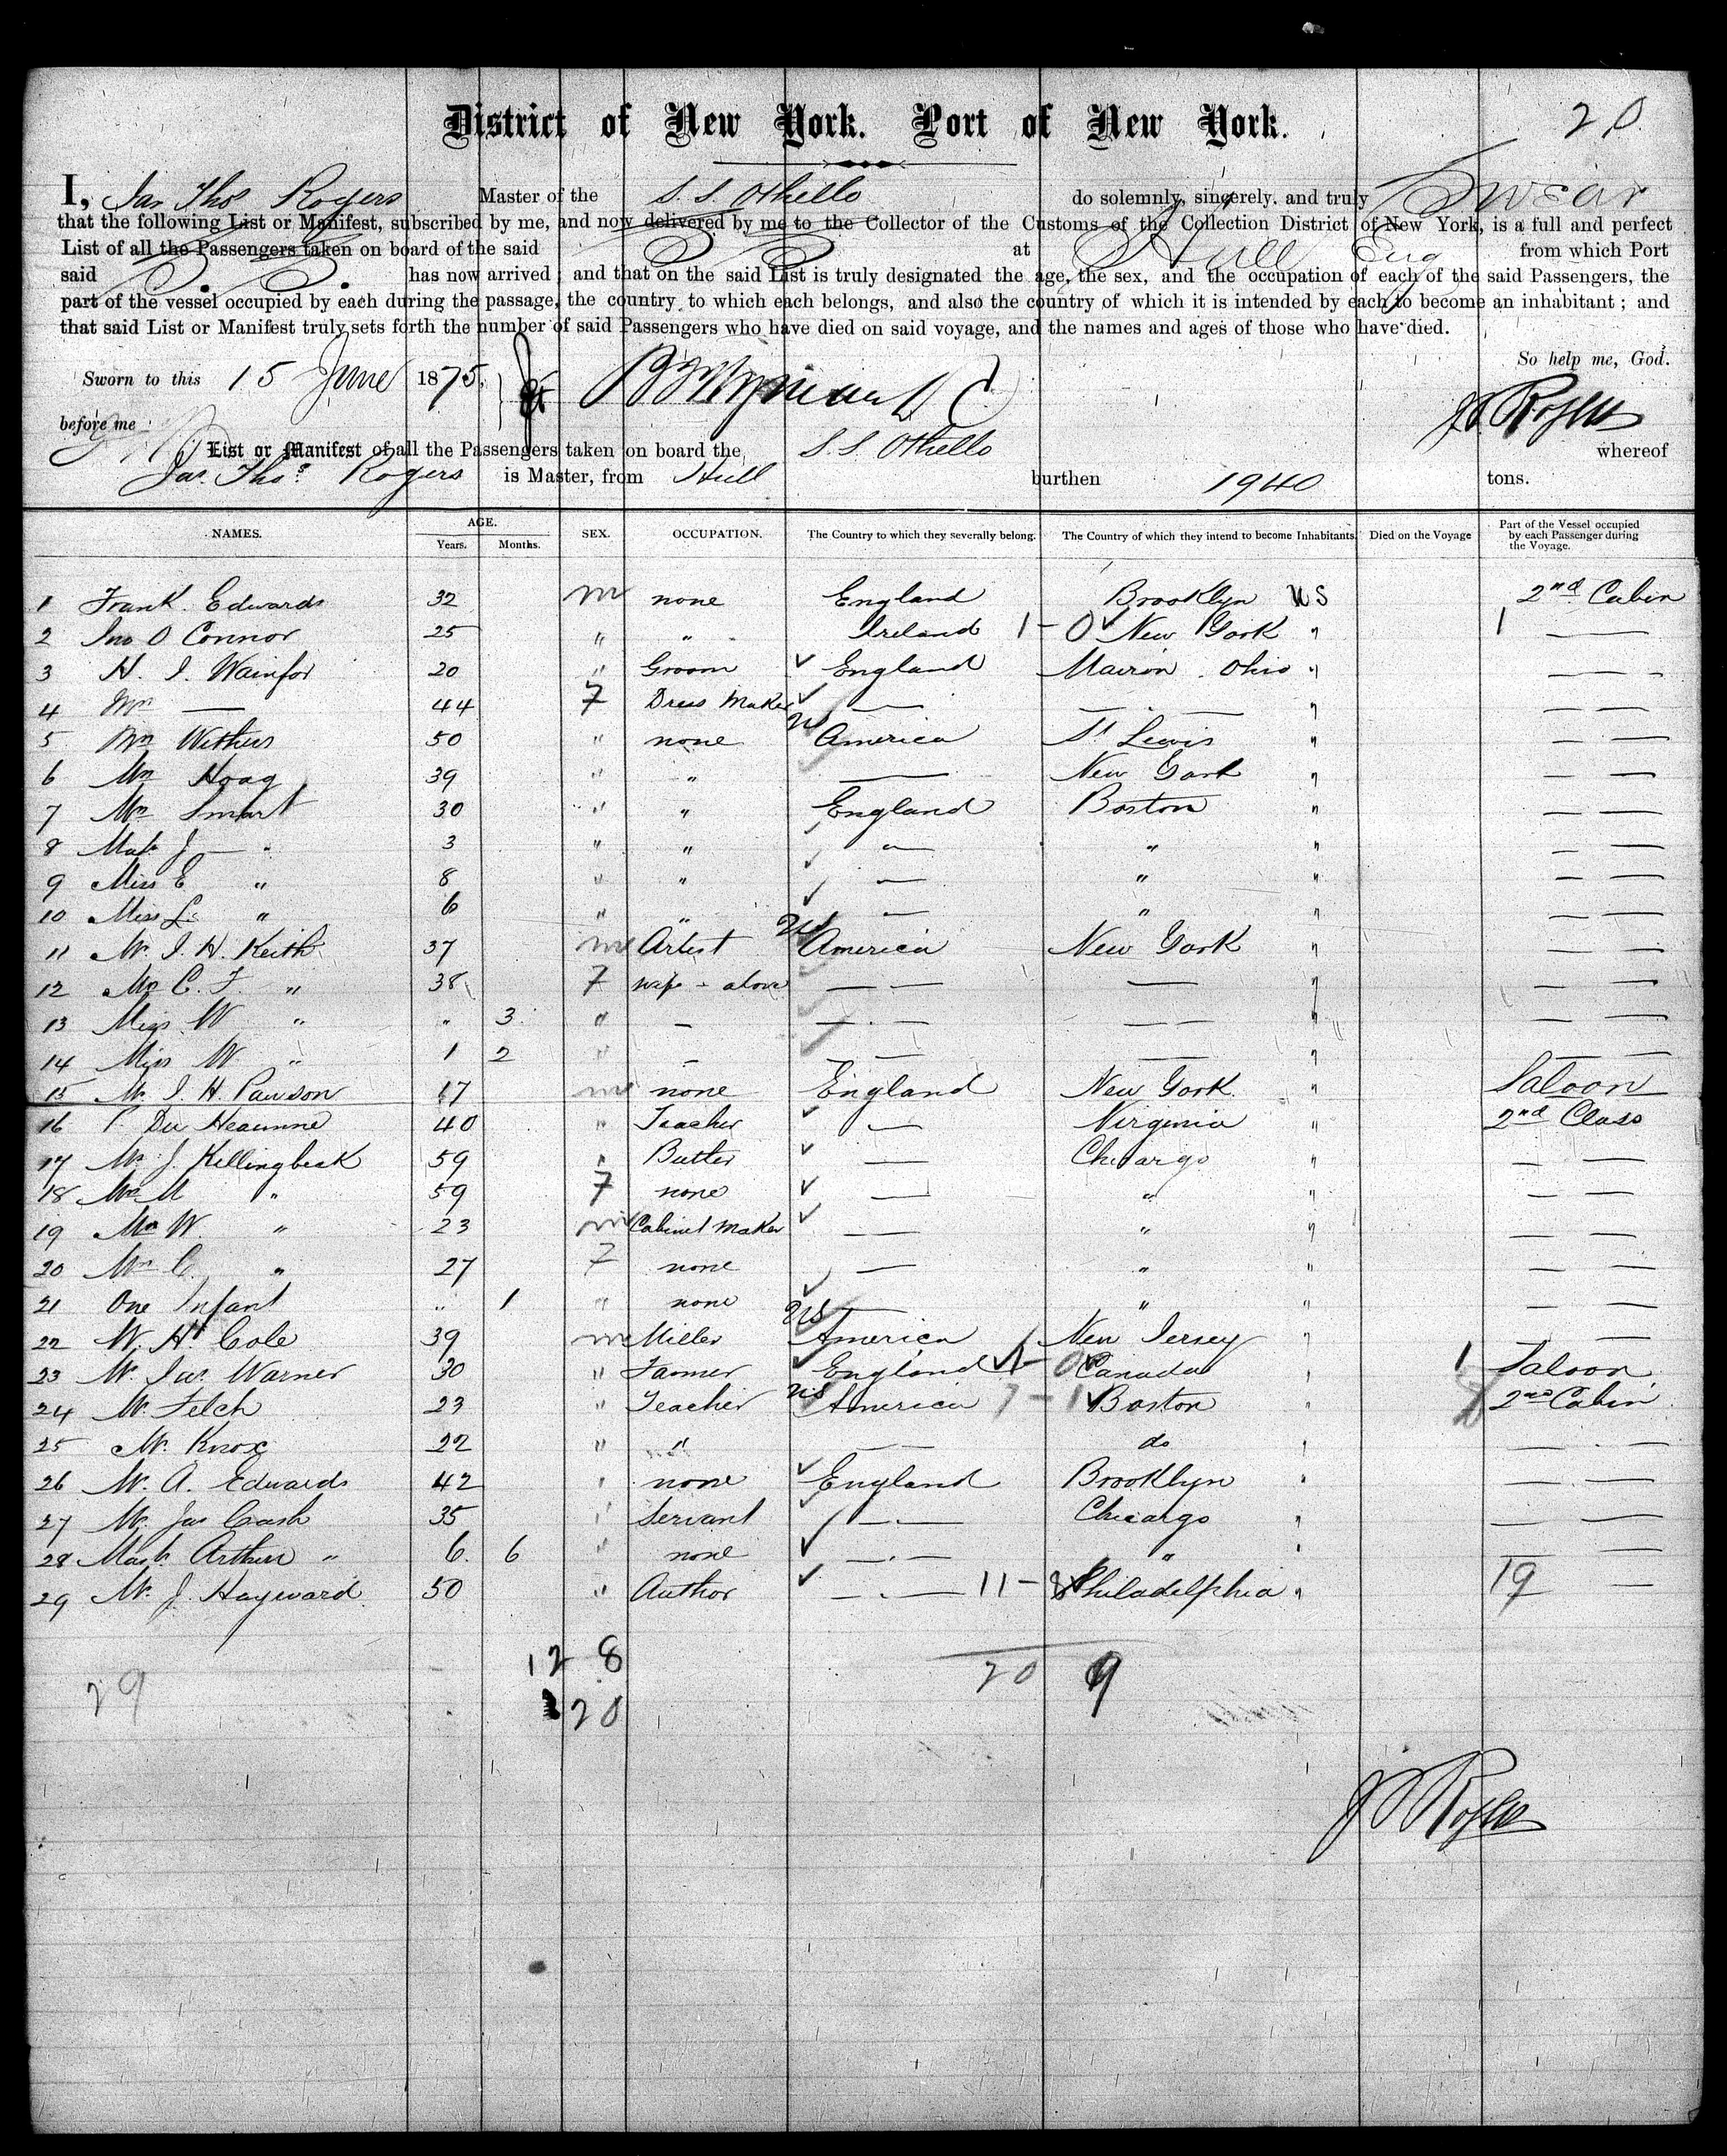 District of New York. Port of New York.
20
I, Jas Thos Rogers Master of the S.S. Othello do solemnly, sincerely. and truly Swear
that the following List or Manifest, subscribed by me, and now delivered by me to the Collector of the Customs of the Collection District of New York, is a full and perfect
List of all the Passengers taken on board of the said S.S. at Hull Eng from which Port
said S.S. has now arrived; and that on the said List is truly designated the age, the sex, and the occupation of each of the said Passengers, the
part of the vessel occupied by each during the passage, the country to which each belongs, and also the country of which it is intended by each to become an inhabitant; and
that said List or Manifest truly sets forth the number of said Passengers who have died on said voyage, and the names and ages of those who have died.
So help me, God.
Sworn to this 15 June 1875.
before me
List or Manifest of all the Passengers taken on board the S.S. Othello whereof
Jas. Thos. Rogers is Master, from Hull burthen 1940 tons.
NAMES. AGE. Years. Months. SEX. OCCUPATION. The Country to which they severally belong. The Country of which they intend to become Inhabitants. Died on the Voyage Part of the Vessel occupied by each Passenger during the Voyage.
1 Frank. Edwards 32 m none England Brooklyn US 2nd Cabin
2 Jno O Connor 25 " " Ireland 1 - 0 New York " 1 —
3 H. I. Wainfor 20 " Groom England Ohio " — —
4 Mrs — 44 F Dress Maker — — — " — —
5 Mrs Withers 50 " none US America St Lewis " — —
6 Mrs Hoag 39 " " — New York " — —
7 Mrs Smart 30 " " England Boston " — —
8 Mas J — " 3 " " — " " — —
9 Miss E " 8 " " — " " — —
10 Miss L. " 6 " " — " " — —
11 Mr. I. H. Keith 37 m Artist US America New York " — —
12 Mrs C. F. " 38 F wife - above — — — " — —
13 Miss W " " 3 " — — — — — " — —
14 Miss M. " 1 2 " — — — " — —
15 Mr. I. H. Pawson 17 m none England New York. " Saloon
16 40 " Teacher — Virginia " 2nd Class
17 Mr J. Killingbeak 59 " Butler — Chicargo " — —
18 Mrs M " 59 F none — " " — —
19 Mr W. " 23 m Cabinet Maker — " " — —
20 Mrs C. " 27 F none — " " — —
21 One Infant " 1 " none — " " — —
22 W. H. Cole 39 m Miller US America New Jersey " — —
23 Mr. Jas. Warner 30 " Farmer England 1 - 0 Canada " 1 Saloon
24 Mr. Felch 23 " Teacher US America 7 - 1 Boston " 2nd Cabin
25 Mr. Knox 22 " " — — do " — —
26 Mr. A. Edwards 42 " none England Brooklyn " — —
27 Mr. Jas Cash 35 " Servant — — Chicargo " — —
28 Mast. Arthur " 6 6 " none — — " " —
29 Mr. J. Hayward 50 " Author — — 11 - 8 Philadelphia " 19 —
12 8
29 20 9
20